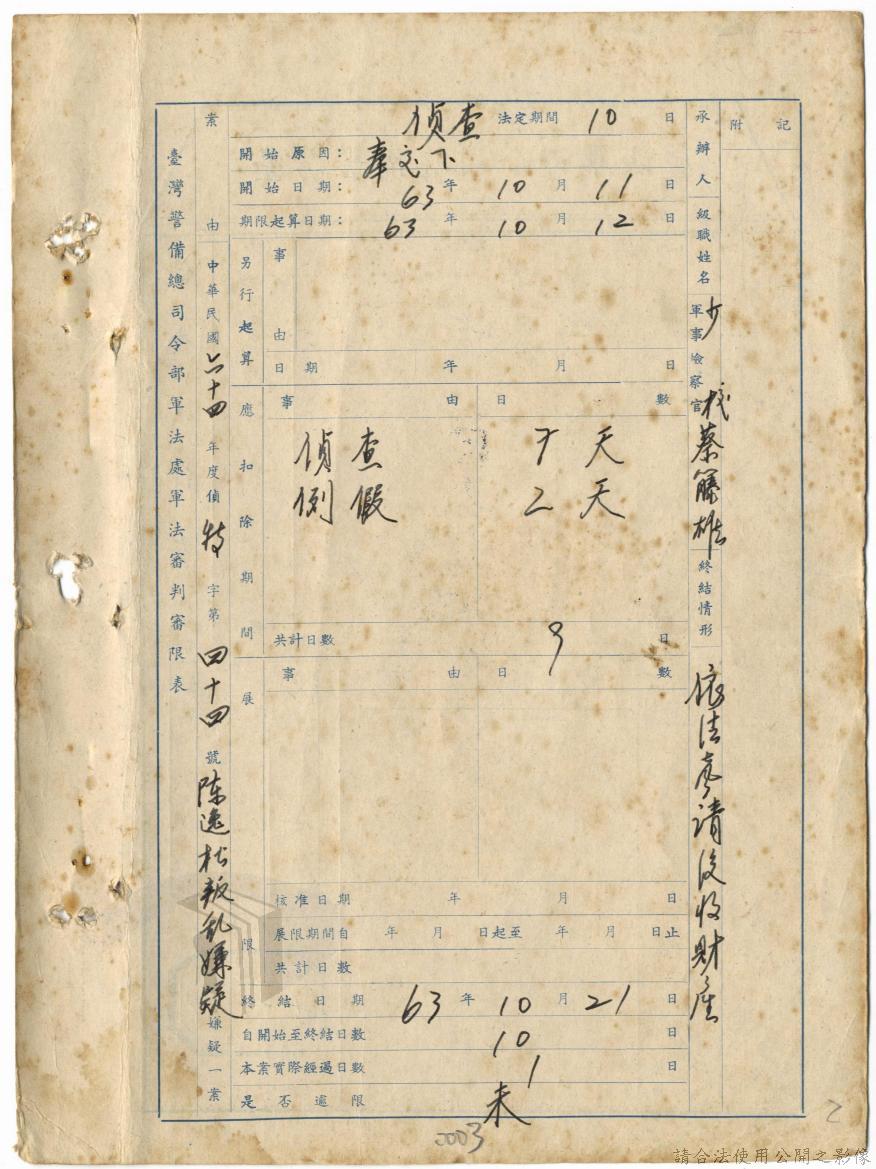 臺灣警備總司令部軍法處軍法審判審限表
案由 中華民國六十四年度偵特字第四十四號陳逸松叛乱嫌疑嫌疑一案
偵查 法定期間 10 日
開始原因：奉交下
開始日期：63年10月11日
期限起算日期：63年10月12日
另行起算
事由
日期 年 月 日
應扣除期間
事由 日數
偵查 7天
例假 2天
共計日數 9日
展限
事由 日數
核准日期 年 月 日
展限期間自 年 月 日起至 年 月 日止
共計日數
終結日期 63年10月21日
自開始至終結日數 10 日
本案實際經過日數 1 日
是否逾限 未
承辦人級職姓名 軍事檢察官 少校蔡籐雄
終結情形 依法聲請沒收財產
附記
0003
2
請合法使用公開之影像